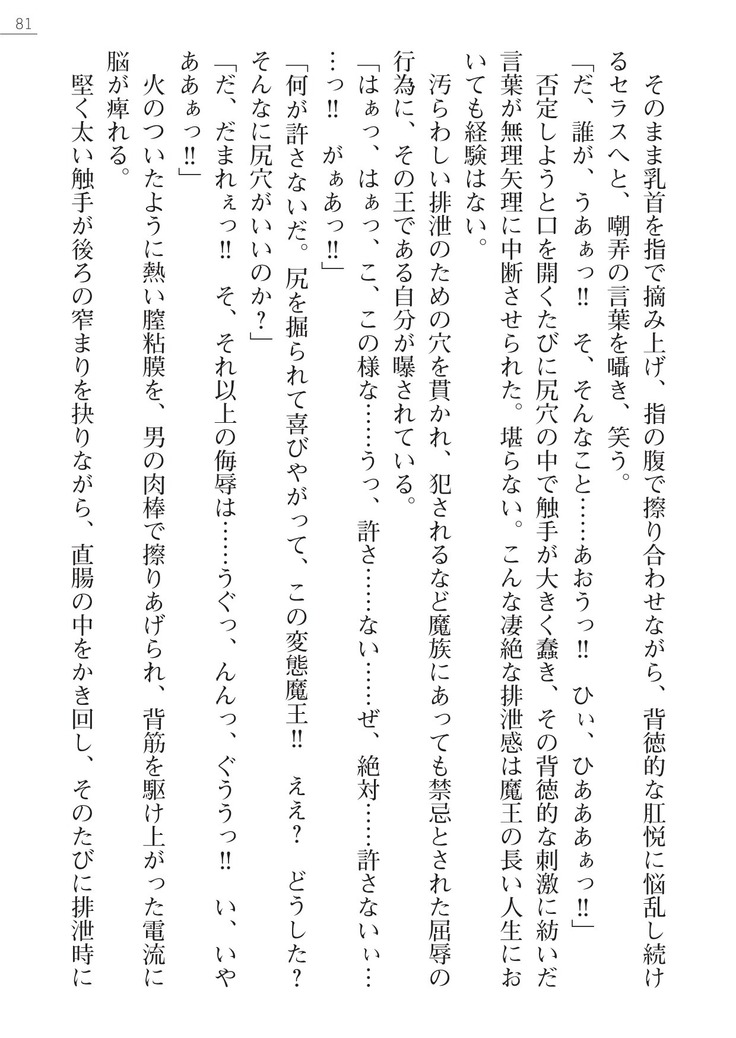 81
そのまま乳首を指で摘み上げ、指の腹で擦り合わせながら、背徳的な肛悦に悩乱し続け
るセラスへと、嘲弄の言葉を囁き、笑う。
「だ、誰が、うあぁっ‼　そ、そんなこと……あおうっ‼　ひぃ、ひあああぁっ‼」
否定しようと口を開くたびに尻穴の中で触手が大きく蠢き、その背徳的な刺激に紡いだ
言葉が無理矢理に中断させられた。堪らない。こんな凄絶な排泄感は魔王の長い人生にお
いても経験はない。
汚らわしい排泄のための穴を貫かれ、犯されるなど魔族にあっても禁忌とされた屈辱の
行為に、その王である自分が曝されている。
「はぁっ、はぁっ、こ、この様な……うっ、許さ……ない……ぜ、絶対……許さないぃ…
…っ‼　がぁあっ‼」
「何が許さないだ。尻を掘られて喜びやがって、この変態魔王‼　ええ？　どうした？
そんなに尻穴がいいのか？」
「だ、だまれぇっ‼　そ、それ以上の侮辱は……うぐっ、んんっ、ぐううっ‼　い、いや
ああぁっ‼」
火のついたように熱い膣粘膜を、男の肉棒で擦りあげられ、背筋を駆け上がった電流に
脳が痺れる。
堅く太い触手が後ろの窄まりを抉りながら、直腸の中をかき回し、そのたびに排泄時に